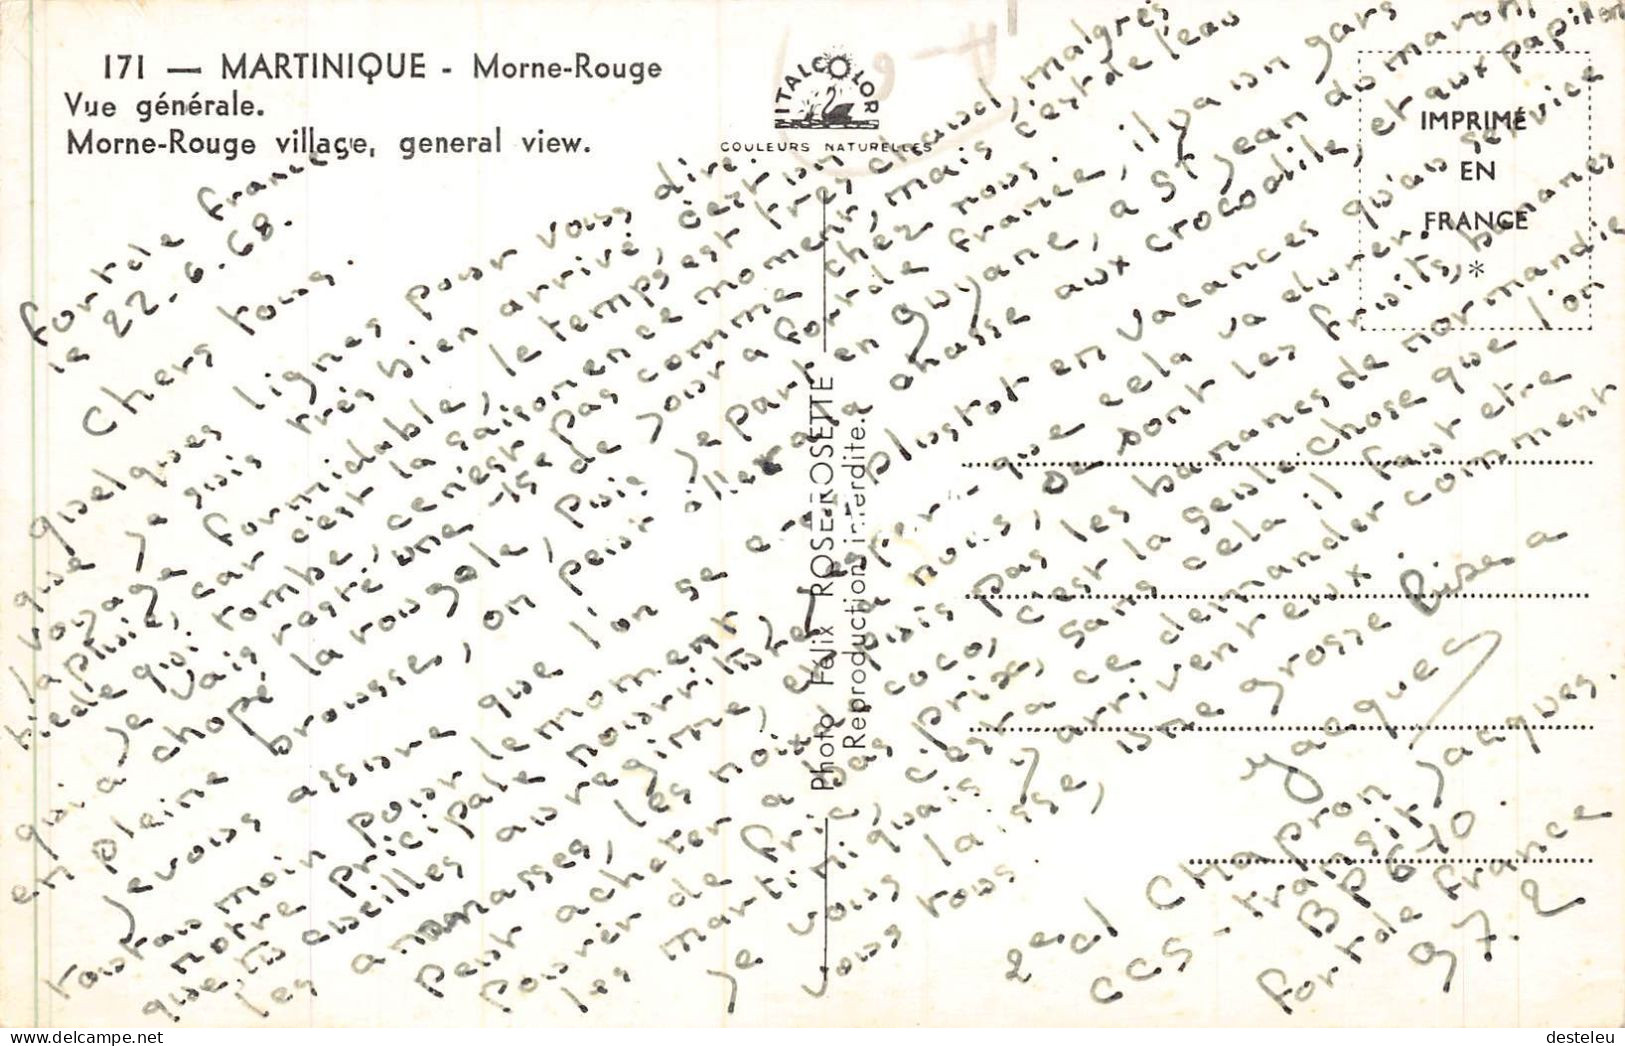 171 — MARTINIQUE - Morne-Rouge
Vue générale.
Morne-Rouge village, general view.
ITALCOLOR
COULEURS NATURELLES
IMPRIMÉ
EN
FRANCE
*
Photo Felix ROSE-ROSETTE
Reproduction interdite.
fort de france
le 22-6-68.
Chers tous.
quelques lignes pour vous dire
que je suis très bien arrivé, c'est un
voyage formidable, le temps est très chaud, malgrès
la pluie, car c'est la saison en ce moment, mais c'est de l'eau
tiède qui tombe, ce n'est pas comme chez nous
je vais resté une 15e de jour a fort de france, il y a un gars
qui a chopé la rougole, puis je part en guyane, a St jean du maroni
en pleine brousse, on peur allera a chasse aux crocodile, et aux papillon
Je vous assure que l'on se plustot en vacances qu'au service
toutau moin pour le moment j'espèr que cela va durer.
notre pricipale nourriture a nous, ce sont les fruits, bananes
que tu cueilles au regime, puis pas les bananes de normandie
les annanasses, les noix coco, c'est la seule chose que l'on
peut acheter a bas prix, sans cela il faut etre
pourér de fric, c'est a ce demander comment
les martiniquais y arrivent eux.
je vous laisse, une grosse Bise a
vous tous.
yacques
2e cl CHapron Jacques.
CCS-transit
BP 610.
fort de france
97.2
desteleu